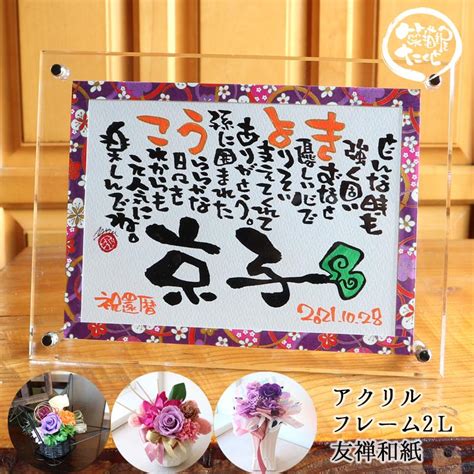 どんな時も
強く固い
きずなと
優しい心で
よりそい
支えてくれて
ありがとう。
孫に囲まれた
うららかな
日々を
これからも
元気に
楽しんでね。
京子
祝還暦
2021.10.28
アクリル
フレーム2L
友禅和紙